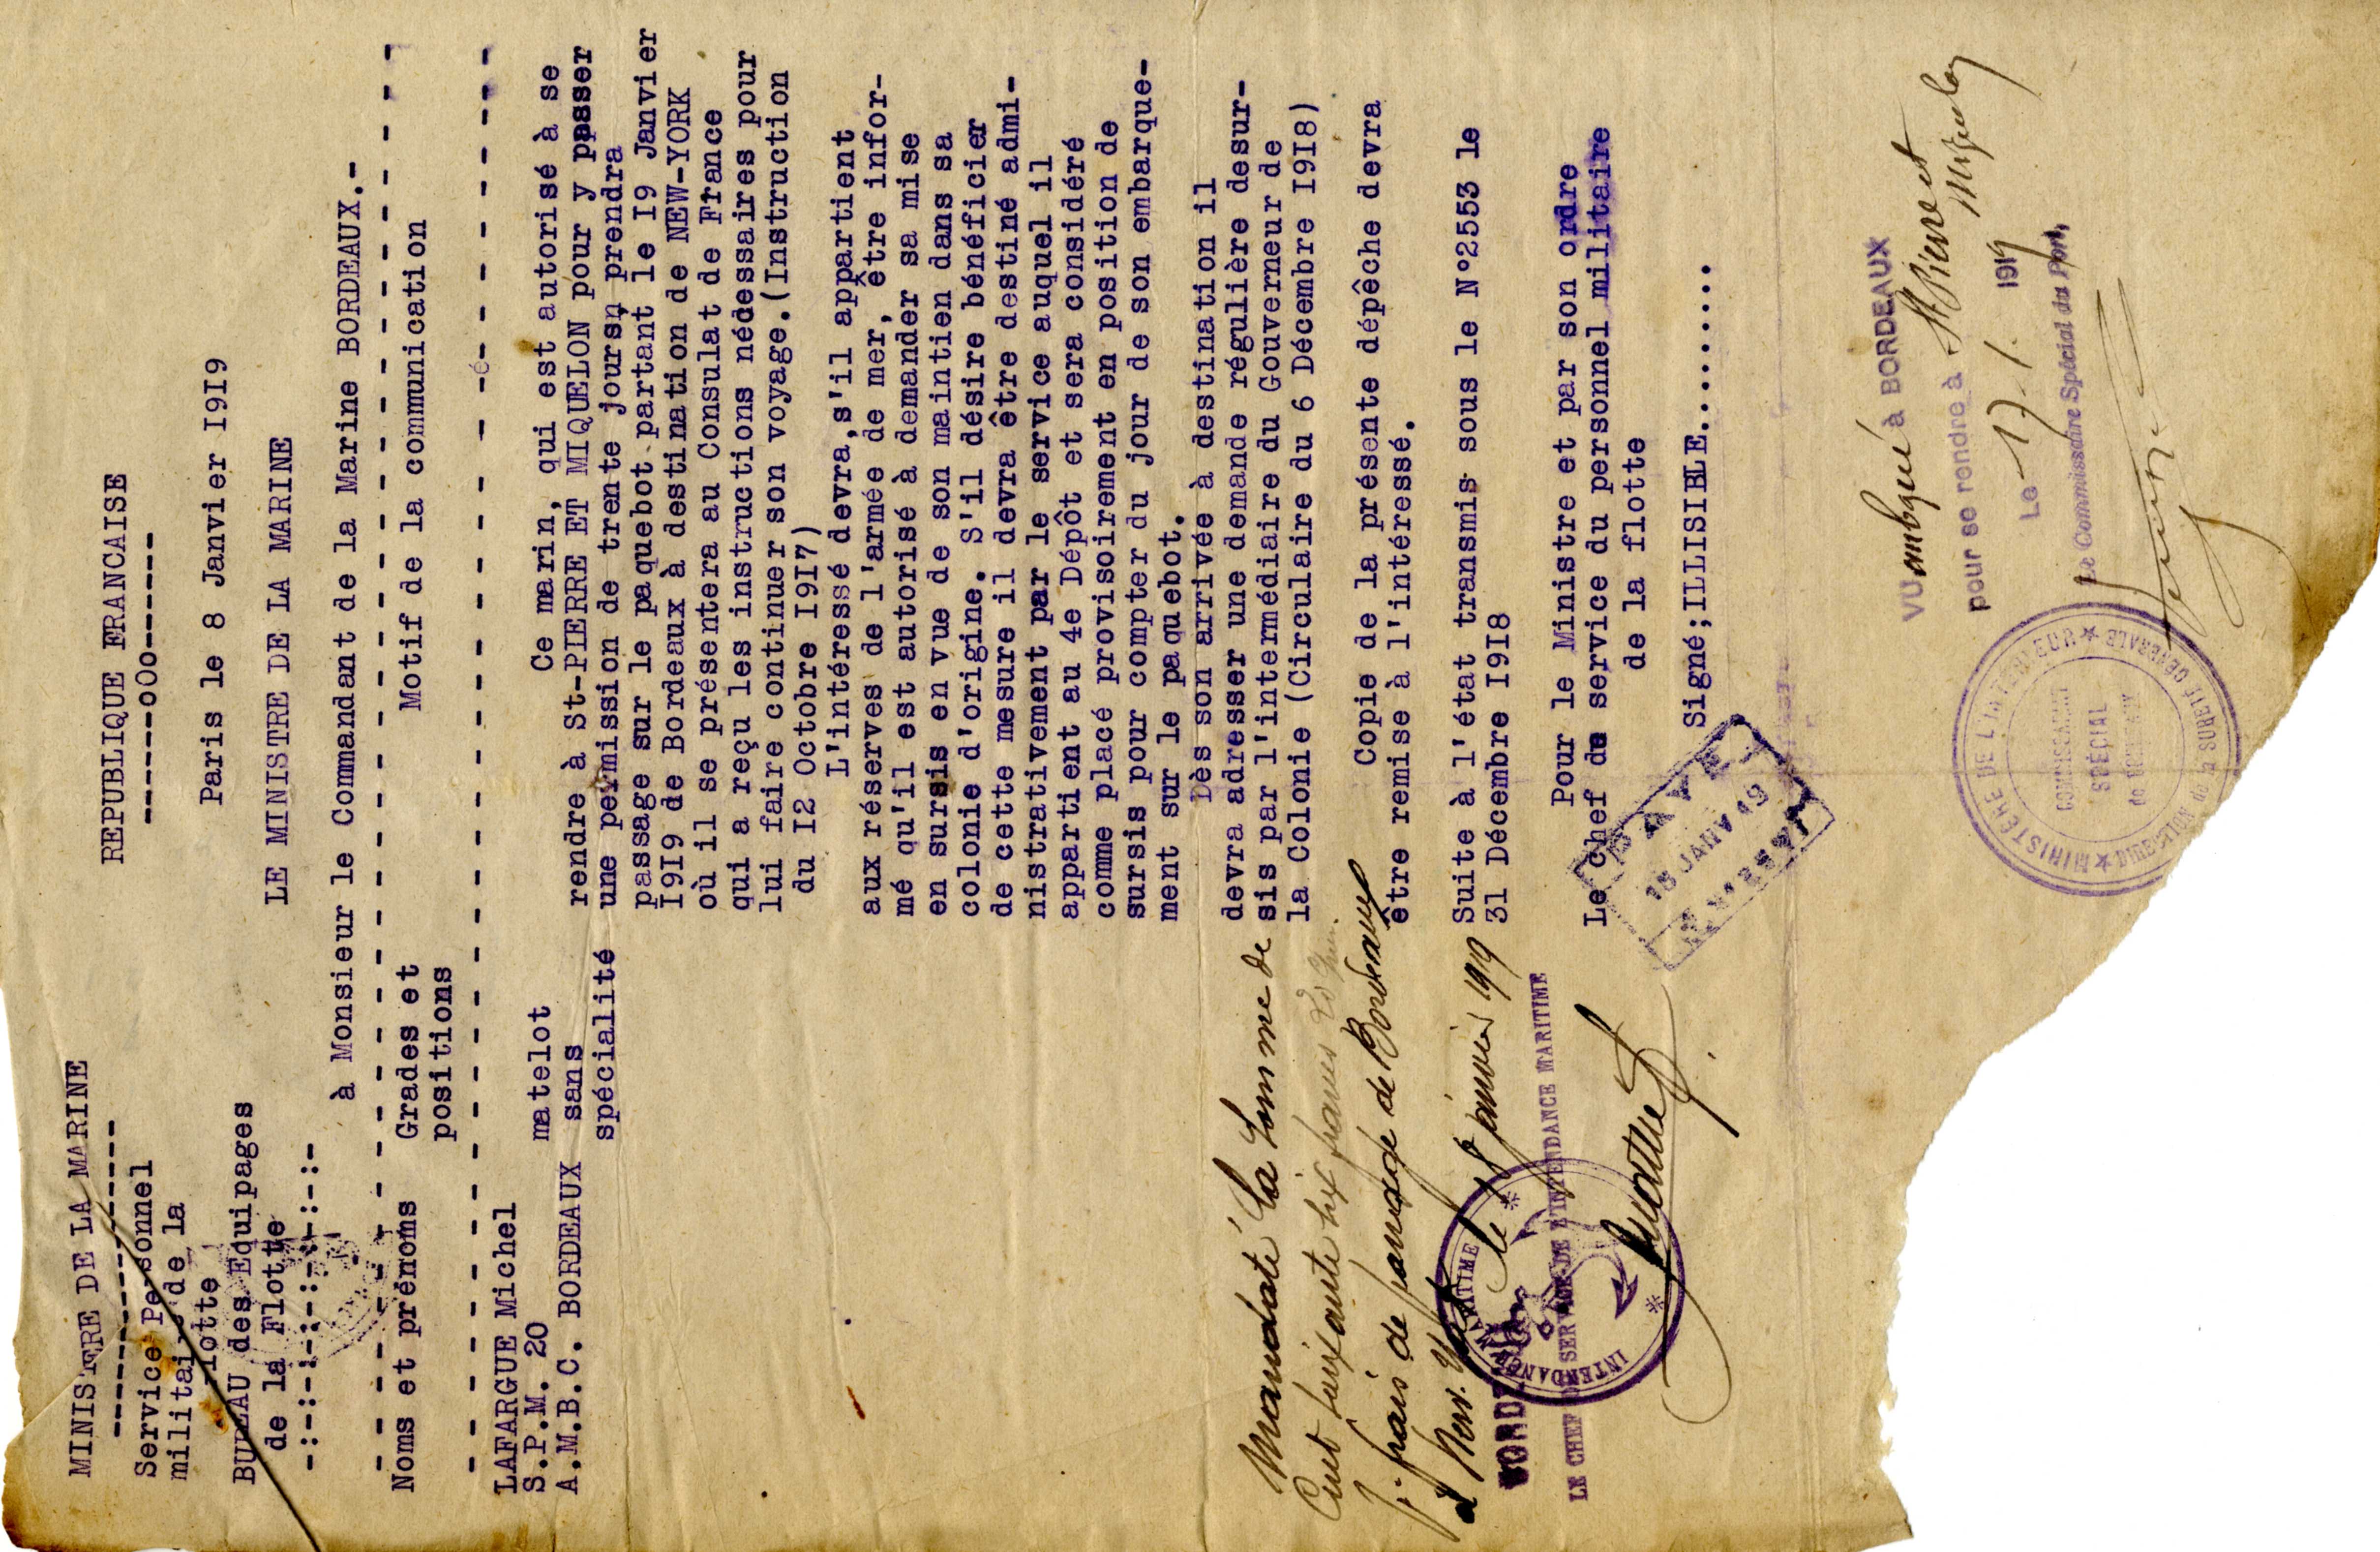 MINISTERE DE LA MARINE
------------------
Service Personnel
militaire de la
flotte
BUREAU des Equipages
de la Flotte
-:-:-:-:-:-:-:-:-:-
REPUBLIQUE FRANCAISE
------oOo------
Paris le 8 Janvier I9I9
LE MINISTRE DE LA MARINE
à Monsieur le Commandant de la Marine BORDEAUX.-
Noms et prénoms
Grades et
positions
Motif de la communication
LAFARGUE Michel
S.P.M. 20
A.M.B.C. BORDEAUX
matelot
sans
spécialité
Ce marin, qui est autorisé à se
rendre à St-PIERRE ET MIQUELON pour y passer
une permission de trente jours, prendra
passage sur le paquebot partant le I9 Janvier
I9I9 de Bordeaux à destination de NEW-YORK
où il se présentera au Consulat de France
qui a reçu les instructions nédessaires pour
lui faire continuer son voyage.(Instruction
du I2 Octobre I9I7)
L'intéressé devra,s'il appartient
aux réserves de l'armée de mer, être infor-
mé qu'il est autorisé à demander sa mise
en sursis en vue de son maintien dans sa
colonie d'origine. S'il désire bénéficier
de cette mesure il devra être destiné admi-
nistrativement par le service auquel il
appartient au 4e Dépôt et sera considéré
comme placé provisoirement en position de
sursis pour compter du jour de son embarque-
ment sur le paquebot.
Dès son arrivée à destination il
devra adresser une demande régulière desur-
sis par l'intermédiaire du Gouverneur de
la Colonie (Circulaire du 6 Décembre I9I8)
Copie de la présente dépêche devra
être remise à l'intéressé.
Suite à l'état transmis sous le N°2553 le
31 Décembre I9I8
Pour le Ministre et par son ordre
Le Chef du service du personnel militaire
de la flotte
Signé;ILLISIBLE.........
Mandaté la somme de
Cent soixante six francs
pr frais de passage de Bordeaux
à New. York
le 18 janvier 1919
LE CHEF DU SERVICE DE L'INTENDANCE MARITIME
INTENDANCE MARITIME
PAYÉ
18 JANV 19
VU embarqué à BORDEAUX
pour se rendre à St Pierre et
Miquelon
Le 17-1. 1919
Le Commissaire Spécial du Port,
MINISTÈRE DE L'INTERIEUR
DIRECTION de la SURETÉ GÉNÉRALE
COMMISSARIAT
SPÉCIAL
de BORDEAUX